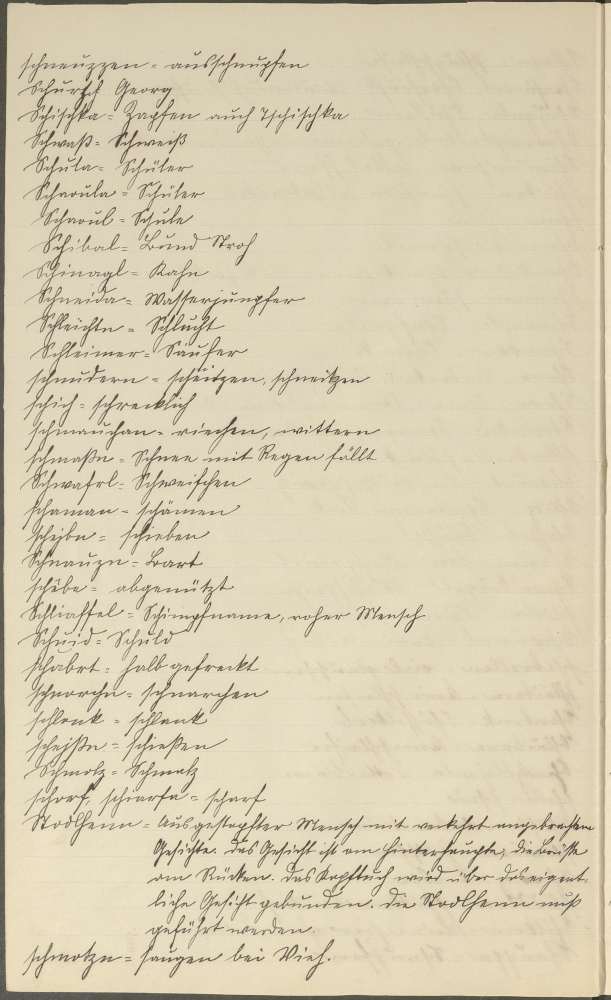 schneuzzen = ausschnupfen
Schurgl Georg
Schischka = Zapfen auch Tschischka
Schwaß = Schweiß
Schula = Schüler
Schaoula = Schüler
Schaoul = Schule
Schibal = Bund Stroh
Schinagl = Kahn
Schneida = Wasserjungfer
Schleichtn = Schlucht
Schleimer = Säufer
schnudern = schneitzen
schich = schrecklich
schmauchan = riechen, wittern
schmaßn = Schnee mit Regen fällt
Schwafrl = Schweifchen
schaman = schämen
scheibn = schieben
Schnauzn = Bart
schebe = abgenützt
Schliaffel = Schimpfname, roher Mensch
Schuid = Schuld
schabrt = halb gefreckt
schnorchn = schnarchen
schlonk = schlank
scheißn = schießen
Schmolz = Schmalz
schorf, schiarfa = scharf
Stodlhenn = Ausgestopfter Mensch mit verkehrt angebrachtem
Gesichte. Das Gesicht ist am Hinterhaupte, die Brüste
am Rücken. Das Kopftuch wird über das eigent-
liche Gesicht gebunden. Die Stodlhenn muß
geführt werden.
schmotzn = saugen bei Vieh.